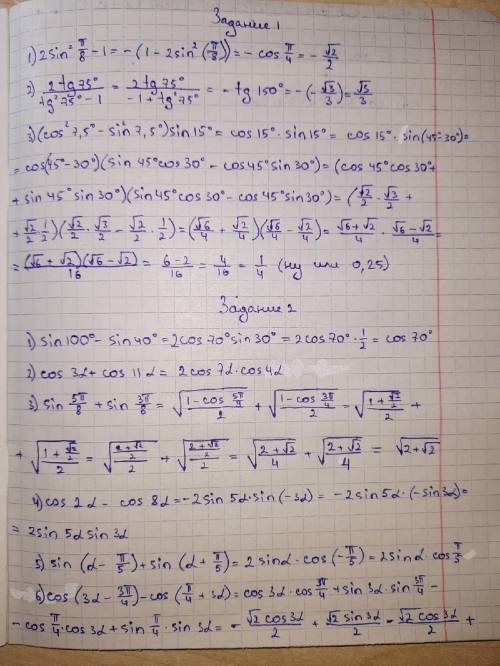 Задание 1
1) 2sin² π/8 - 1 = -(1 - 2sin² (π/8)) = -cos π/4 = -√2/2
2) 2tg75°/(tg²75° - 1) = 2tg75°/(-1 + tg²75°) = -tg150° = -(-√3/3) = √3/3
3) (cos²7,5° - sin²7,5°) sin15° = cos15° · sin15° = cos15° · sin(45°-30°) =
= cos(45°-30°)(sin45°cos30° - cos45°sin30°) = (cos45°cos30° +
+ sin45°sin30°)(sin45°cos30° - cos45°sin30°) = (√2/2 · √3/2 +
+ √2/2 · 1/2)(√2/2 · √3/2 - √2/2 · 1/2) = (√6/4 + √2/4)(√6/4 - √2/4) = (√6+√2)/4 · (√6-√2)/4 =
= (√6 + √2)(√6 - √2)/16 = (6-2)/16 = 4/16 = 1/4 (ну или 0,25)
Задание 2
1) sin100° - sin40° = 2cos70°sin30° = 2cos70° · 1/2 = cos70°
2) cos 3α + cos 11α = 2cos7α · cos4α
3) sin 5π/8 + sin 3π/8 = √((1 - cos 5π/4)/2) + √((1 - cos 3π/4)/2) = √((1 + √2/2)/2) +
+ √((1 + √2/2)/2) = √(((2+√2)/2)/2) + √(((2+√2)/2)/2) = √((2+√2)/4) + √((2+√2)/4) = √(2+√2)
4) cos2α - cos8α = -2sin5α · sin(-3α) = -2sin5α · (-sin3α) =
= 2sin5α sin3α
5) sin(α - π/5) + sin(α + π/5) = 2sinα · cos(-π/5) = 2sinα · cos π/5
6) cos(3α - 3π/4) - cos(π/4 + 3α) = cos3α · cos 3π/4 + sin3α · sin 3π/4 -
- cos π/4 · cos3α + sin π/4 · sin3α = -√2cos3α/2 + √2sin3α/2 - √2cos3α/2 +